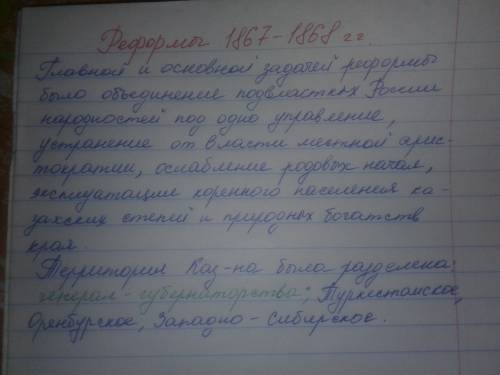 Реформы 1867-1868 гг.
Главной и основной задачей реформы
было объединение подвластных России
народностей под одно управление,
устранение от власти местной арис-
тократии, ослабление родовых начал,
эксплуатации коренного населения ка-
захских степей и природных богатств
края.
Территория Каз-на была разделена:
генерал-губернаторства; Туркестанское,
Оренбурское, Западно-Сибирское.